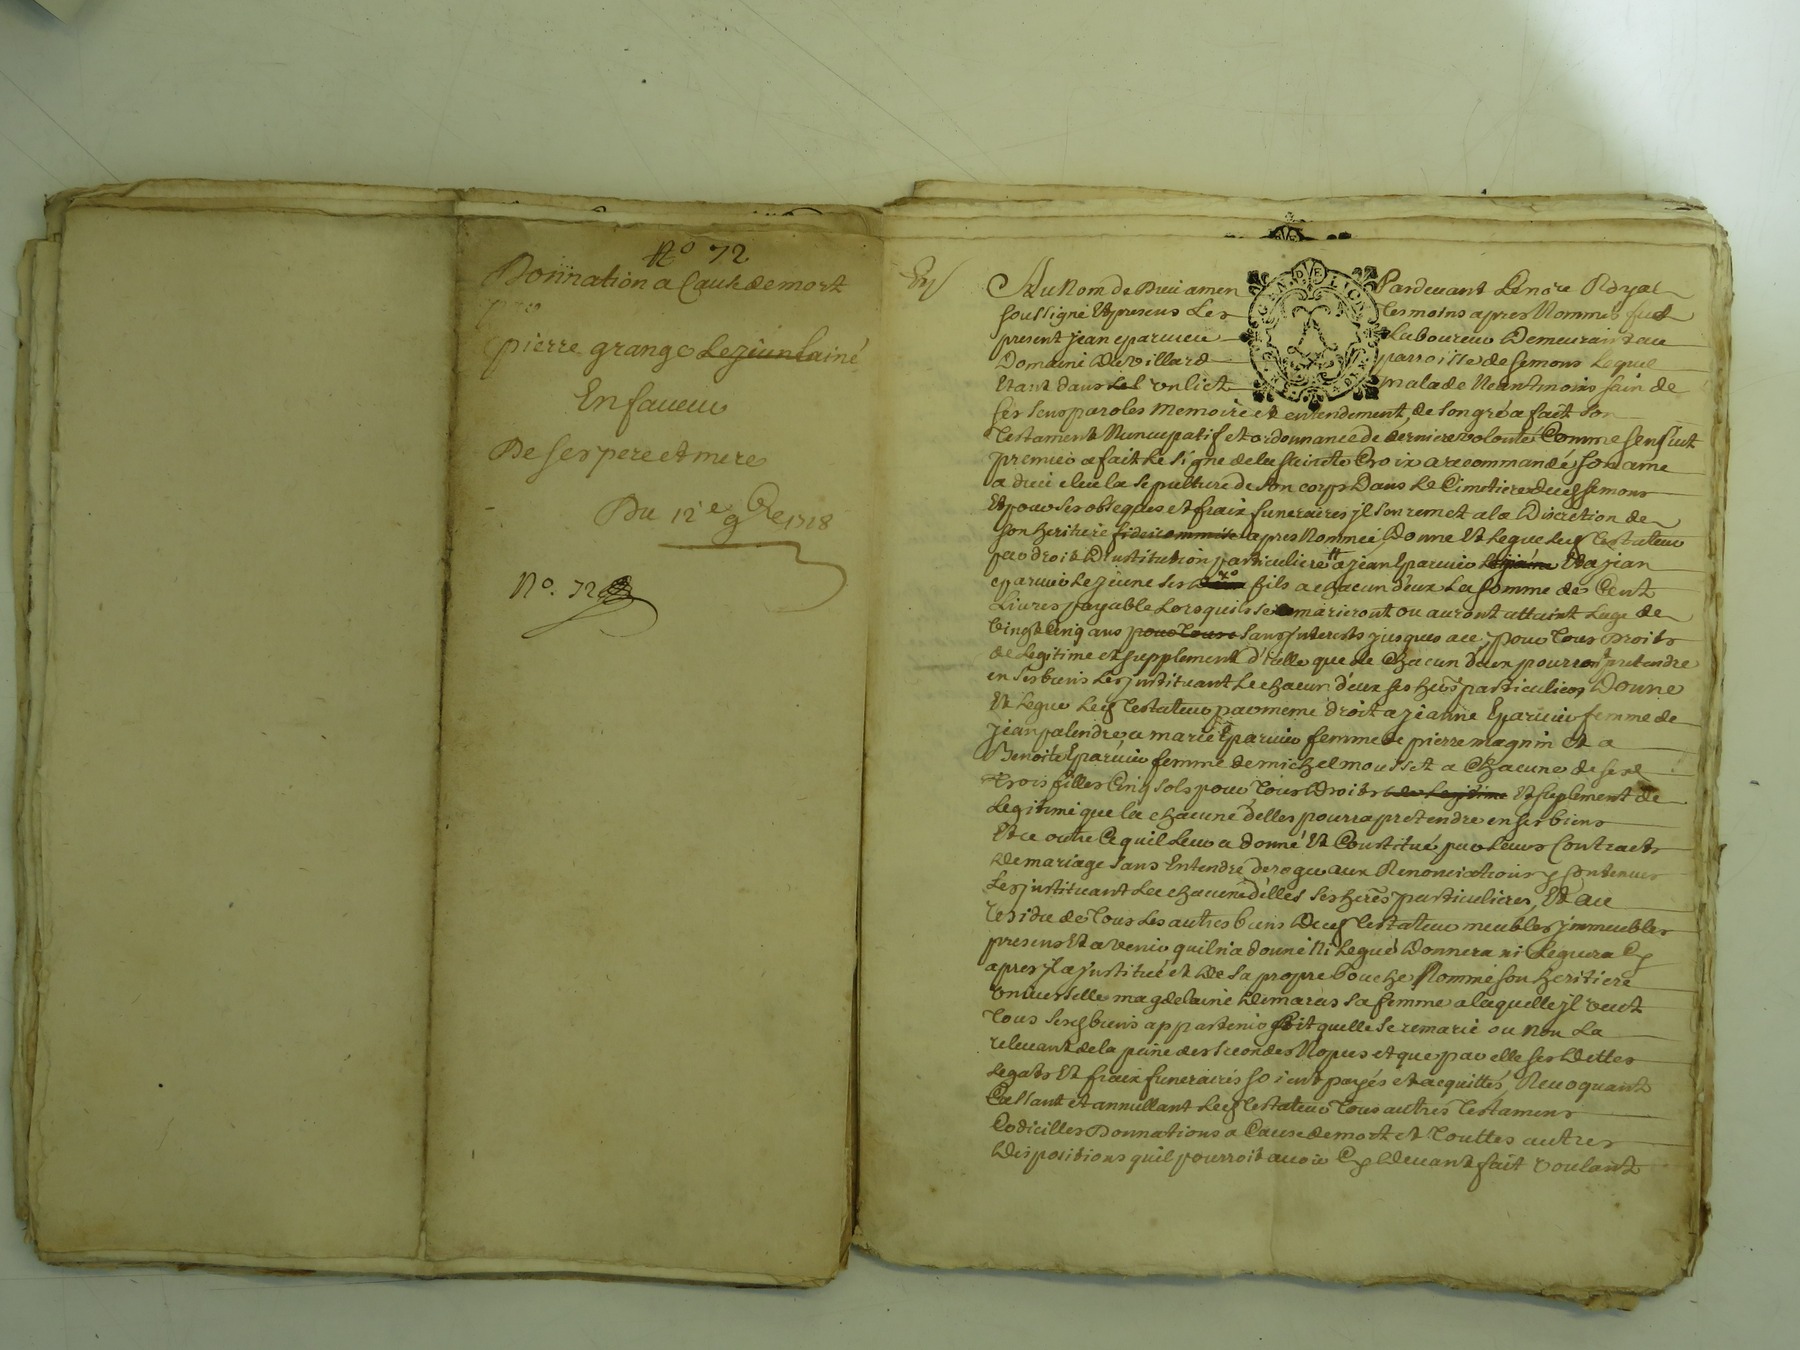 No 72
Donnation a Cause de mort
pro
pierre grange Le jeun lainé
En faueur
De ses pere et mere
Du 12e 9bre 1718
No. 72
Exp
Au Nom de Dieu amen Pardeuant Lenore Royal
soussigné Et presens Les tesmoins apres Nommes fut
present jean eparuier Laboureur Demeurant au
Domaine De villard parroisse de semons Lequel
Etant dans un lict malade Neantmoins sain de
ses sens paroles Memoire et entendement, de son gré a fait son
testament Nuncupatif et ordonnance de derniere volonté Comme sensuit
premier a fait le signe de la saincte Croix a recommandé son ame
a dieu elue la sepulture de son corps Dans Le Cimetiere dud semons
Et pour ses obseques et fraix funeraires jl son remet a la Discretion de
son heritiere fideicommise apres Nommée, Donne Et Legue led testateur
par droit Dinstitution particuliere a jean Eparuier Et a jean
eparuier Le jeune ses fils a chacun deux La somme de Cent
Liures payable Lorsquils se marieront ou auront attaint Lage de
vingt Cinq ans pour tous sans jnterests jusques a ce, pour tous Droits
de Legitime et supplement d'icelle que le Chacun deux pourront pretendre
en ses biens Les jnstituant Le chacun d'eux ses heers particuliers Donne
Et Legue Led testateur par meme droit a jeanne Eparuier femme de
jean palendre a marie Eparuier femme de pierre magnin et a
Benoite Eparuier femme de michel mousset a Chacune de sesd
trois filles Cinq sols pour tous Droits de Legitime Et suplement de
Legitime que la chacune delles pourra pretendre en ses biens
Et ce outre Ce quil Leur a donné Et Constitué par Leurs Contracts
de mariage sans Entendre deroger aux Renonciations y contenues
Les jnstituant La chacune delles ses heres particulieres, Et au
residu de tous Les autres biens Dud testateur meubles jmmeubles
presens Et a venir quil n'a donné Ni Legué Donnera ni Leguera Cy
apres jl a jnstitué et De sa propre bouche Nommé son heritiere
vniuerselle magdelaine Demarais sa femme a laquelle jl veut
tous sesd biens appartenir soit quelle se remarie ou Non La
releuant de la peine des secondes Nopces et que par elle ses Dettes
Legats Et fraix funeraires soient payés et acquittés, Reuoquant
Cassant et annullant Led testateur tous autres testamens
Codicilles Donnations a Cause de mort et touttes autres
Dispositions quil pourroit auoir Cy Deuant fait voulant